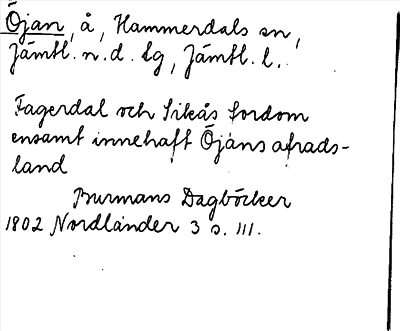 Öjan, å, Hammerdals sn,
Jämtl. n. d. lg, Jämtl. l.
Fagerdal och Sikås fordom
ensamt innehaft Öjåns afrads-
land
Burmans Dagböcker
1802 Nordländer 3 s. 111.